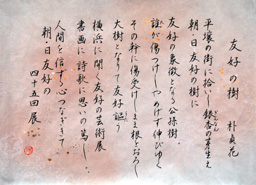 友好の樹
朴貞花
平壌の街に拾う銀杏の芽生え
朝・日友好の樹に
友好の象徴となる公孫樹
誰が傷つけしやめげず伸びゆく
その幹に傷受けしまま根をおろし
大樹となりて友好謳う
横浜に開く友好の芸術展
書画に詩歌に思いの篤し
人間を信ずる心つなぎきて
朝・日友好の
四十五回展